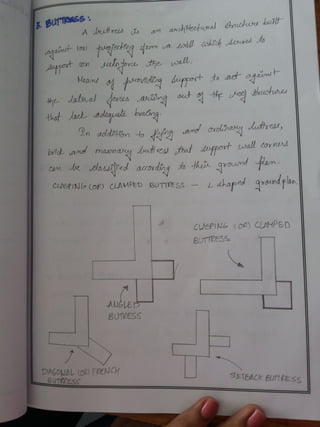 3. BUTTRESS:
A buttress is an architectural structure built
against (or) projecting from a wall which serves to
support or reinforce the wall.
Means of providing support to act against
the lateral forces arising out of the roof structures
that lack adequate bracing.
In addition to flying and ordinary buttress,
brick and masonary buttress that support wall corners
can be classified according to their ground plan.
CLASPING (OR) CLAMPED BUTTRESS - L shaped groundplan.
CLASPING (OR) CLAMPED
BUTTRESS
ANGLED
BUTRESS
DIAGONAL (OR) FRENCH
BUTTRESS
SETBACK BUTTRESS